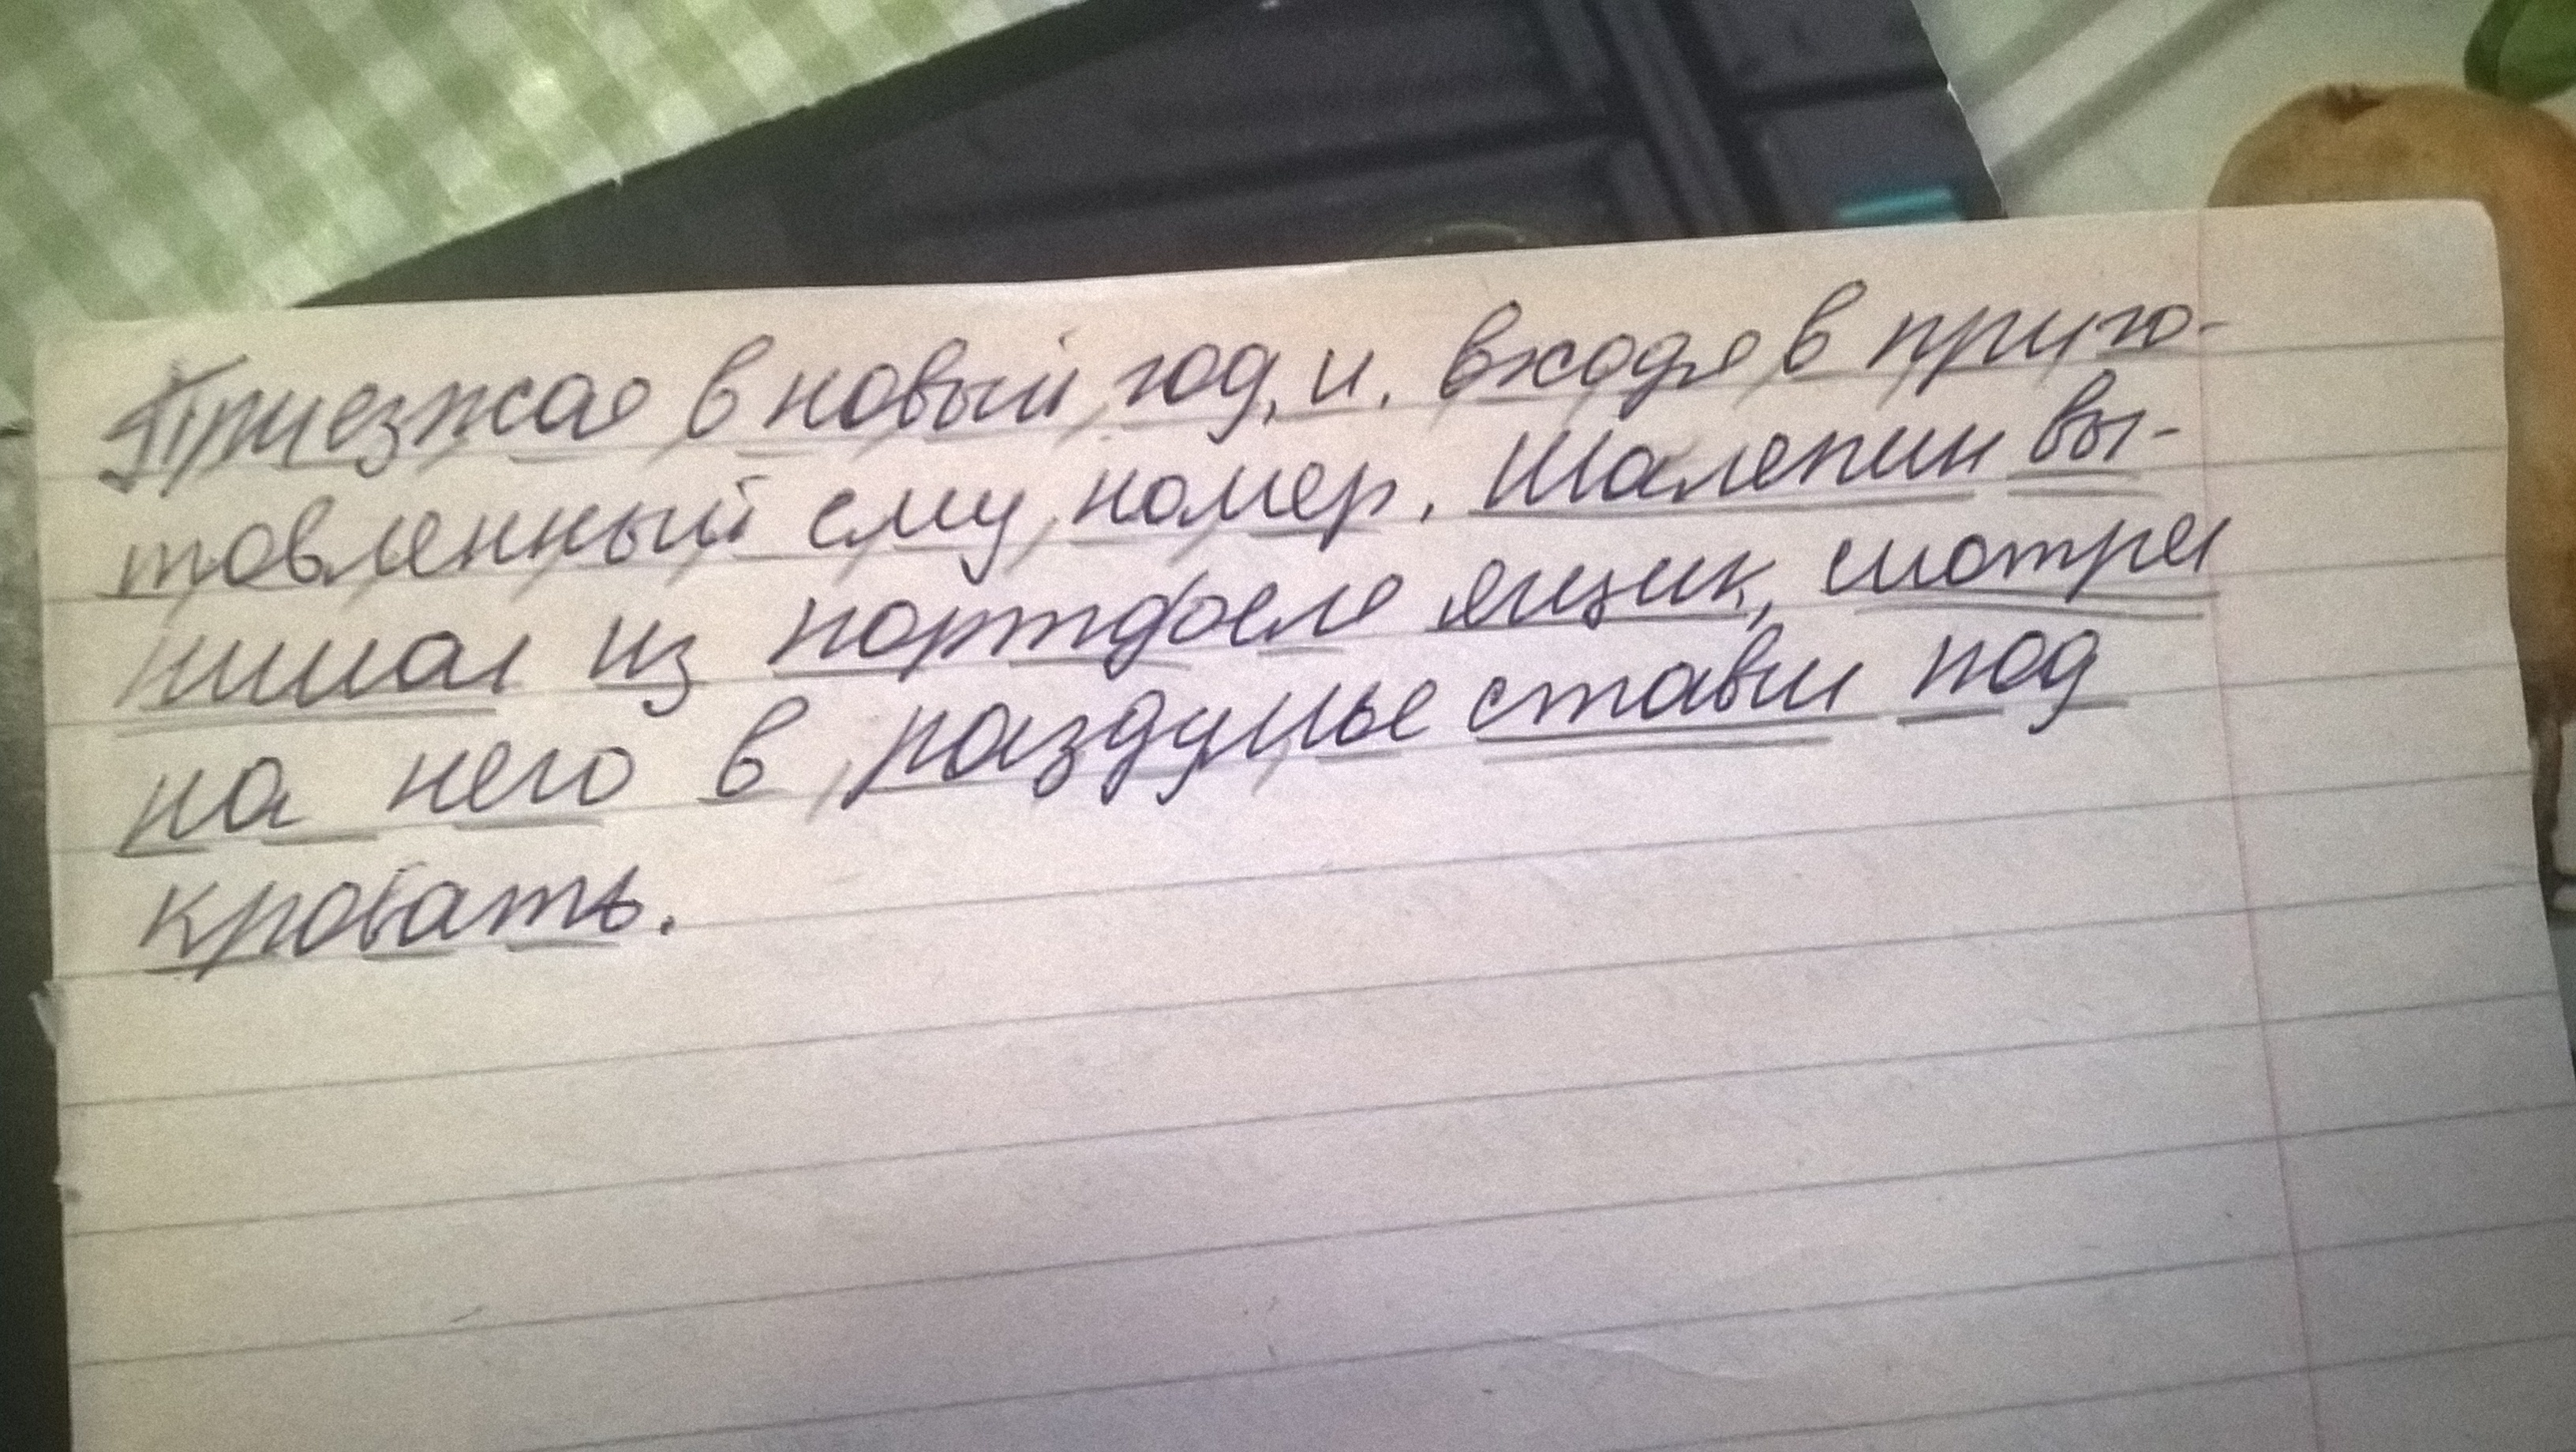 Приезжая в новый год, и, входя в приго-
товленный ему номер, Шаляпин вы-
нимал из портфеля ящик, смотрел
на него в раздумье ставил под
кровать.